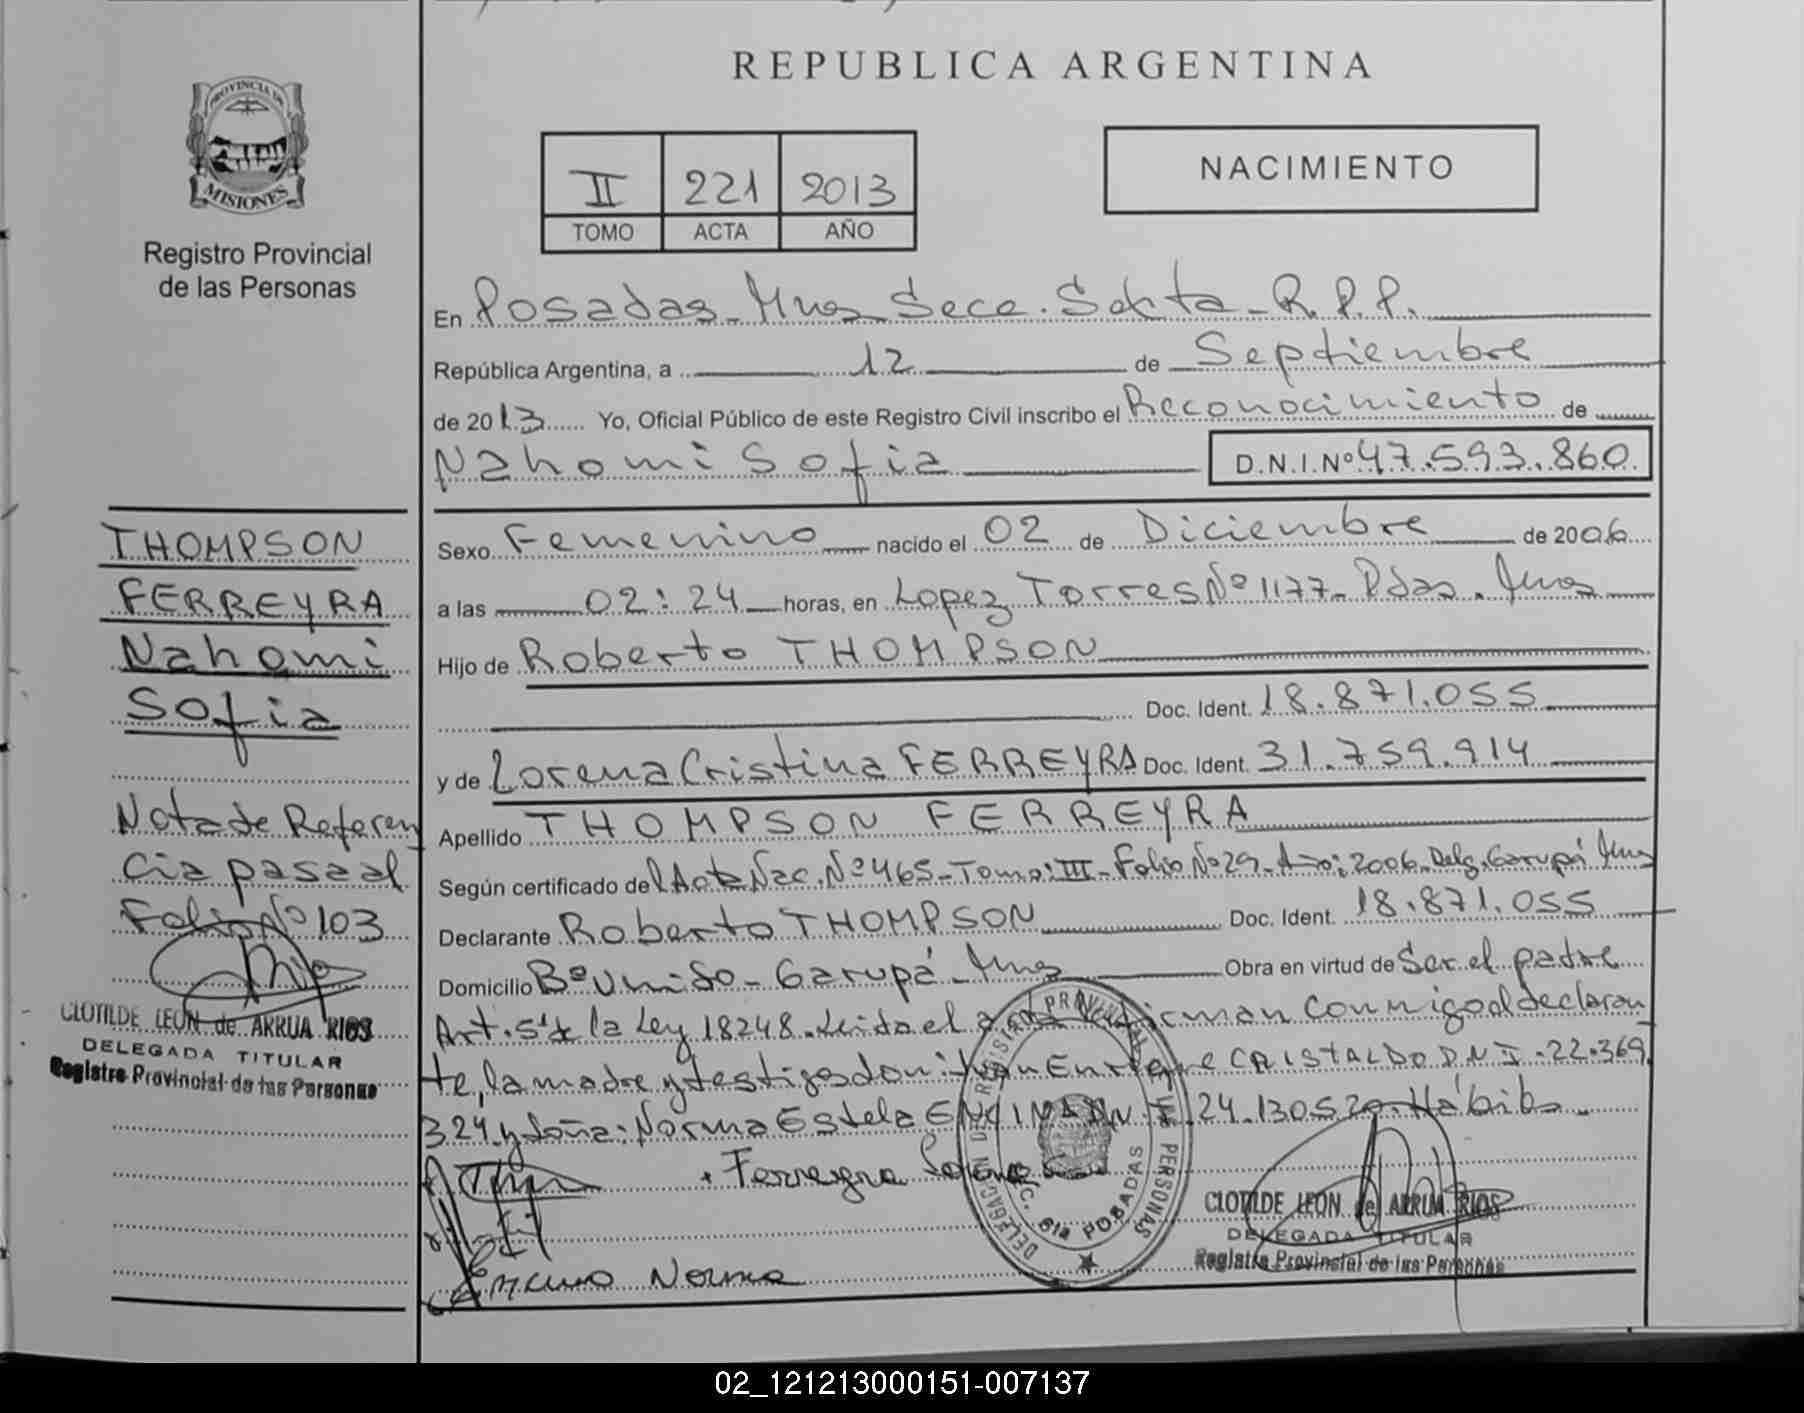 REPUBLICA ARGENTINA
PROVINCIA DE
MISIONES
Registro Provincial
de las Personas
II 221 2013
TOMO ACTA AÑO
NACIMIENTO
En Posadas - Mnes Secc. Sexta - R.P.P.
República Argentina, a 12 de Septiembre
de 2013 Yo, Oficial Público de este Registro Civil inscribo el Reconocimiento de
Nahomi Sofia D.N.I. Nº 47.593.860.
THOMPSON
FERREYRA
Nahomi
Sofia
Nota de Referen
cia pasa al
Folio Nº 103
CLOTILDE LEON de ARRUA RIOS
DELEGADA TITULAR
Registro Provincial de las Personas
Sexo Femenino nacido el 02 de Diciembre de 2006
a las 02:24 horas, en Lopez Torres Nº 1177 - Pdas. Mnes
Hijo de Roberto THOMPSON
Doc. Ident. 18.871.055
y de Lorena Cristina FERREYRA Doc. Ident. 31.759.914
Apellido THOMPSON FERREYRA
Según certificado del Acta Nac. Nº 465 - Tomo: III - Folio Nº 29 - Año: 2006 - Deleg. Garupá Mnes
Declarante Roberto THOMPSON Doc. Ident. 18.871.055
Domicilio Bº Unido - Garupá - Mnes Obra en virtud de Ser el padre
Art. 5º de la Ley 18248. Leida el acta firman conmigo el declaran
te, la madre y testigos don: Juan Enrique CRISTALDO D.N.I. 22.369.
324. y doña: Norma Estela ENCINA D.N.I. 24.130520. Hábiles.
Ferreyra Lorena
Encina Norma
DELEGACION DE REGISTRO PROVINCIAL DE LAS PERSONAS
SECC. 6ta POSADAS
CLOTILDE LEON de ARRUA RIOS
DELEGADA TITULAR
Registro Provincial de las Personas
02_121213000151-007137